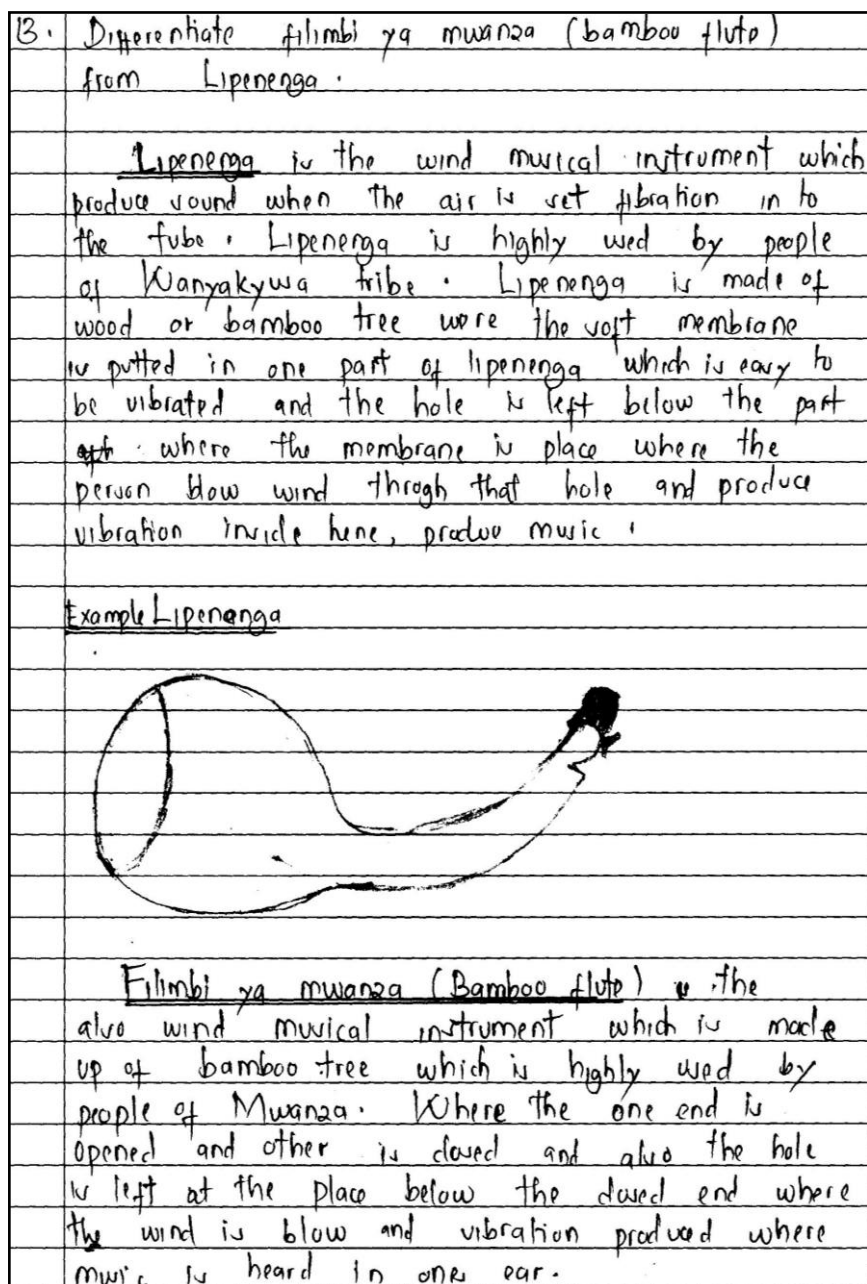 13. Differentiate filimbi ya mwanza (bamboo flute)
from Lipenenga.
Lipenenga is the wind musical instrument which
produce sound when the air is set fibration in to
the tube. Lipenenga is highly used by people
of Wanyakywsa tribe. Lipenenga is made of
wood or bamboo tree were the soft membrane
is putted in one part of lipenenga which is easy to
be vibrated and the hole is left below the part
where the membrane is place where the
person blow wind throgh that hole and produce
vibration inside hene, produo music.
Example Lipenenga
Filimbi ya mwanza (Bamboo flute) is the
also wind musical instrument which is made
up of bamboo tree which is highly used by
people of Mwanza. Where the one end is
opened and other is closed and also the hole
is left at the place below the closed end where
the wind is blow and vibration produced where
music is heard in one ear.